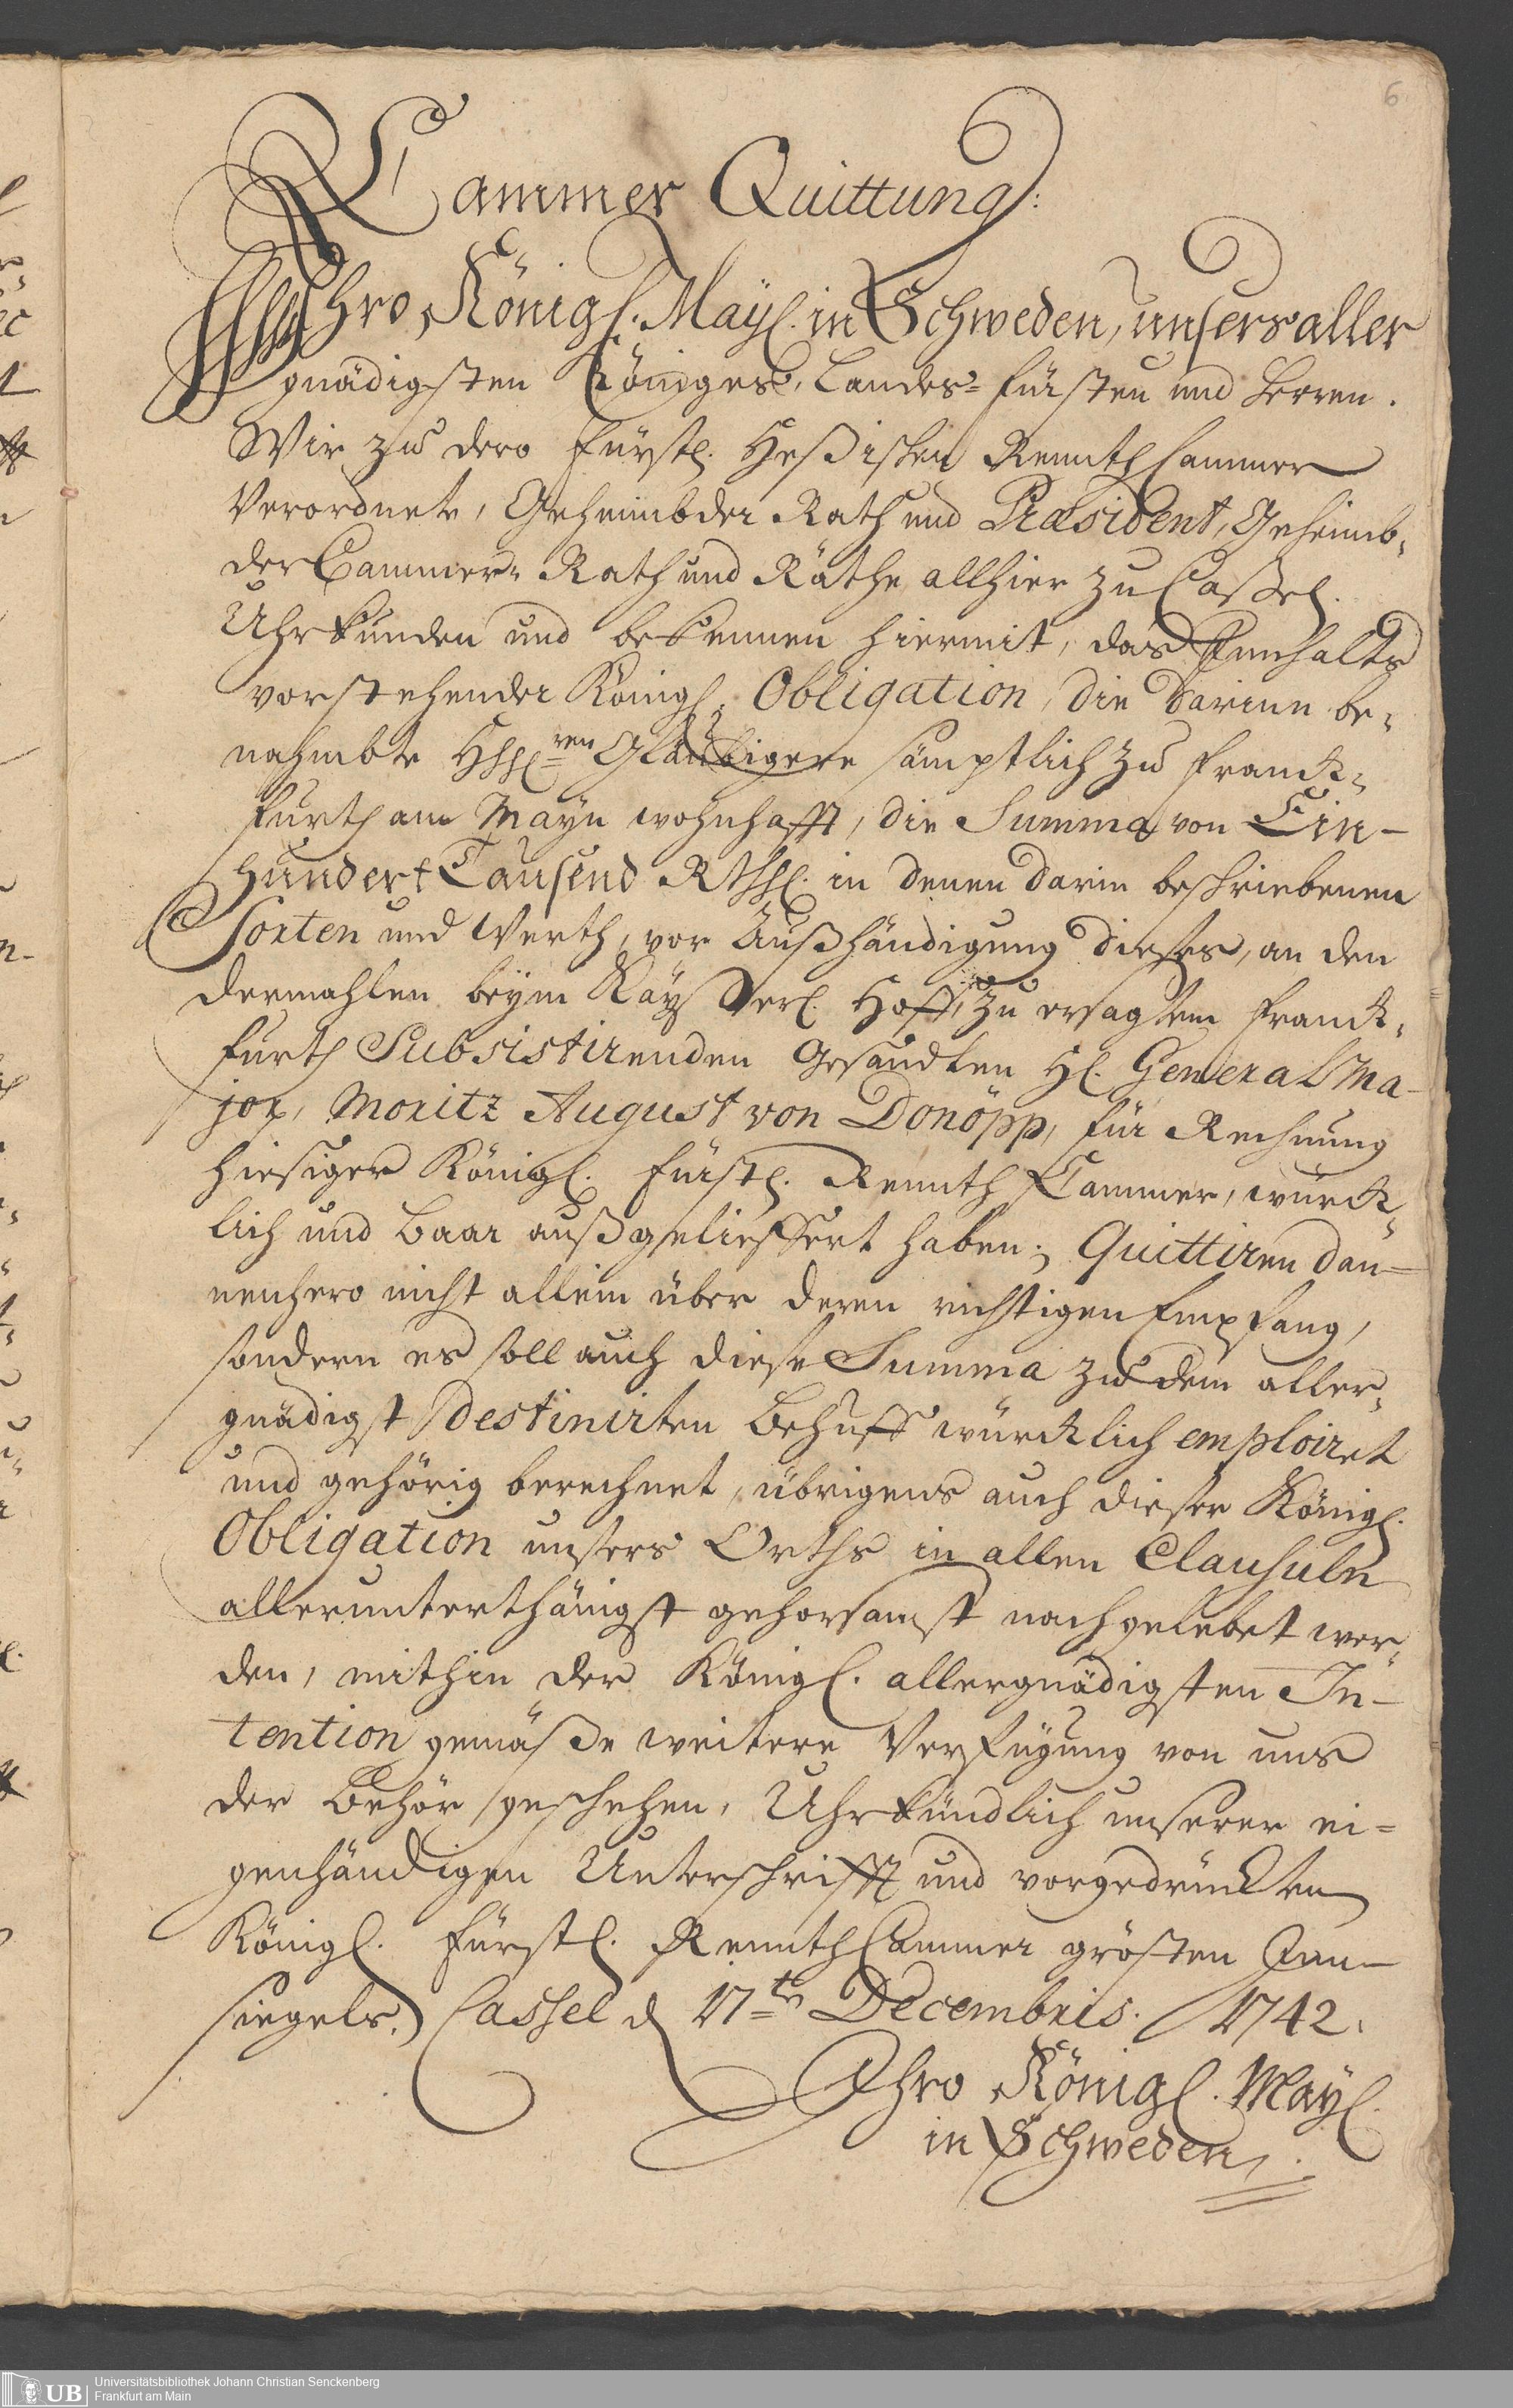 6
Cammer Quittung:
Ihro Königl. Mayl. in Schweden, unsers aller
gnädigsten Königes, Landes-Fürsten und Herren.
Wir zu dero Fürstl. Heßischen Rennth Cammer
Verordnete, Geheimbder Rath und Præsident, Geheimb-
der Cammer-Rath und Räthe allhier zu Cassel.
Uhrkunden und bekennen hiermit, das Innhalts
vorstehender Königl. Obligation, die darinn be-
nahmbte Gläubigere sämptlich zu Franck-
furth am Mayn wohnhafft, die Summa von Ein-
hundert Tausend Rthl. in denen darin beschriebenen
Sorten und Werth, vor Außhändigung dieses, an den
dermahlen beym Kayserl. Hoff, zu ersagtem Franck-
furth Subsistirenden Gesandten H. General Ma-
jor, Moritz August von Donöpp, für Rechnung
hiesiger Königl. Fürstl. Rennth Cammer, würck-
lich und baar außgelieffert haben; Quittiren dan-
nenhero nicht allein über deren richtigen Empfang,
sondern es soll auch diese Summa zu dem aller-
gnädigst destinirten Behuff würcklich emploiret
und gehörig berechnet, übrigens auch dieser Königl.
Obligation unsers Orths in allen Clausuln
allerunterthänigst gehorsamst nachgelebet wer-
den, mithin der Königl. allergnädigsten In-
tention gemäße weitere Verfügung von uns
der Behör geschehen, Uhrkündlich unserer ei-
genhändigen Unterschrifft und vorgedruckten
Königl. Fürstl. Rennth Cammer grösten Inn-
siegels, Cassel d 17ten Decembris. 1742.
Ihro Königl. Mayl.
in Schweden
UB Universitätsbibliothek Johann Christian Senckenberg
Frankfurt am Main